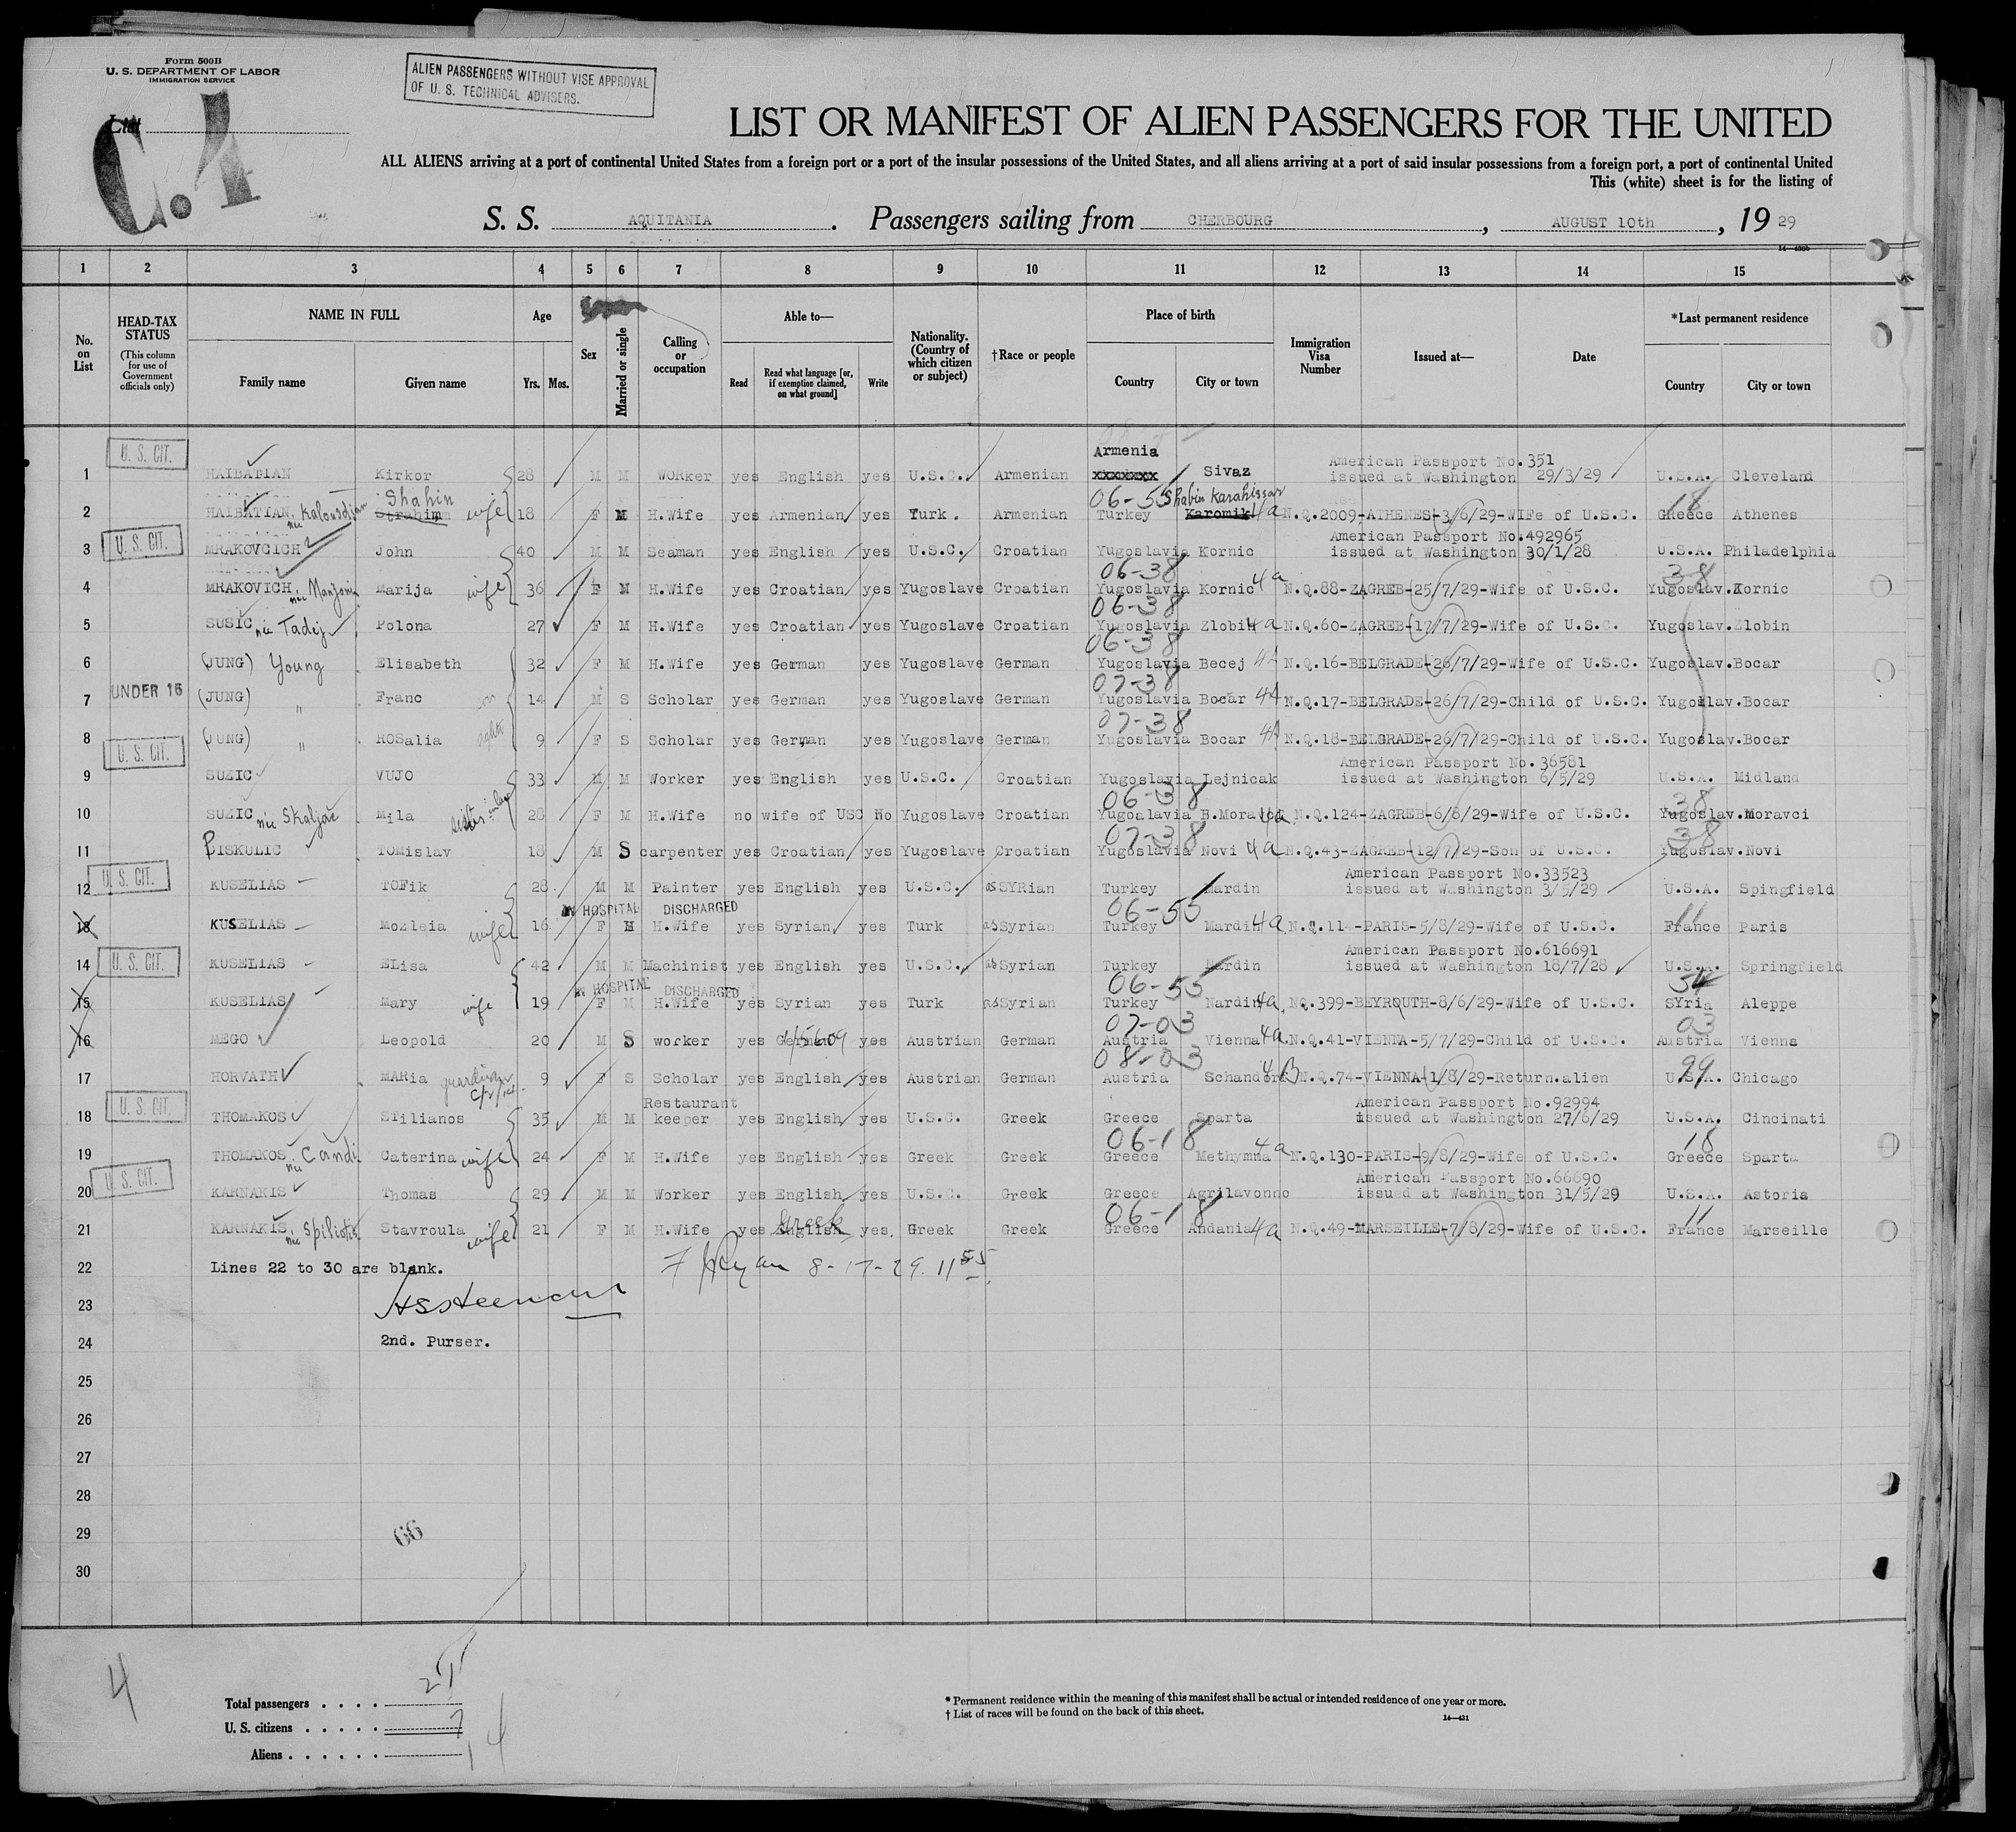 Form 500B
U. S. DEPARTMENT OF LABOR
IMMIGRATION SERVICE
ALIEN PASSENGERS WITHOUT VISE APPROVAL
OF U. S. TECHNICAL ADVISERS.
List
C.4
LIST OR MANIFEST OF ALIEN PASSENGERS FOR THE UNITED
ALL ALIENS arriving at a port of continental United States from a foreign port or a port of the insular possessions of the United States, and all aliens arriving at a port of said insular possessions from a foreign port, a port of continental United
This (white) sheet is for the listing of
S. S. AQUITANIA . Passengers sailing from CHERBOURG , AUGUST 10th , 19 29
1 2 3 4 5 6 7 8 9 10 11 12 13 14 15
No. on List
HEAD-TAX STATUS (This column for use of Government officials only)
NAME IN FULL
Family name Given name
Age
Yrs. Mos.
Sex
Married or single
Calling or occupation
Able to—
Read Read what language [or, if exemption claimed, on what ground] Write
Nationality. (Country of which citizen or subject)
†Race or people
Place of birth
Country City or town
Immigration Visa Number
Issued at—
Date
*Last permanent residence
Country City or town
U. S. CIT. Armenia American Passport No.351
1 HAIBATIAN Kirkor 28 M M WORker yes English yes U.S.C. Armenian xxxxxxx Sivaz issued at Washington 29/3/29 U.S.A. Cleveland
Shahin 06-55 Shabin Karahissar 18
2 HAIBATIAN née Kalousdjian wife 18 F M H.Wife yes Armenian yes Turk. Armenian Turkey Karomik 4a N.Q.2009-ATHENES-3/6/29-WIFe of U.S.C. Greece Athenes
U. S. CIT. American Passport No.492965
3 MRAKOVCICH John 40 M M Seaman yes English yes U.S.C. Croatian Yugoslavia Kornic issued at Washington 30/1/28 U.S.A. Philadelphia
06-38 38
4 MRAKOVICH née Marija wife 36 F M H.Wife yes Croatian yes Yugoslave Croatian Yugoslavia Kornic 4a N.Q.88-ZAGREB-25/7/29-Wife of U.S.C. Yugoslav.Kornic
06-38
5 SUSIC née Tadej Polona 27 F M H.Wife yes Croatian yes Yugoslave Croatian Yugoslavia Zlobin 4a N.Q.60-ZAGREB-17/7/29-Wife of U.S.C. Yugoslav.Zlobin
06-38
6 (JUNG) Young Elisabeth 32 F M H.Wife yes German yes Yugoslave German Yugoslavia Becej 4A N.Q.16-BELGRADE-26/7/29-Wife of U.S.C. Yugoslav.Bocar
UNDER 16 07-38
7 (JUNG) " Franc son 14 M S Scholar yes German yes Yugoslave German Yugoslavia Bocar 4A N.Q.17-BELGRADE-26/7/29-Child of U.S.C. Yugoslav.Bocar
07-38
8 (JUNG) " ROSalia 9 F S Scholar yes German yes Yugoslave German Yugoslavia Bocar 4A N.Q.18-BELGRADE-26/7/29-Child of U.S.C. Yugoslav.Bocar
U. S. CIT. American Passport No.36581
9 SUZIC VUJO 33 M M Worker yes English yes U.S.C. Croatian Yugoslavia Lejnicak issued at Washington 6/5/29 U.S.A. Midland
06-38 38
10 SUZIC née Skaljac Mila sister in law 28 F M H.Wife no wife of USC No Yugoslave Croatian Yugoalavia B.Moravci 4a N.Q.124-ZAGREB-6/6/29-Wife of U.S.C. Yugoslav.Moravci
07-38 38
11 PISKULIC TOMislav 18 M S carpenter yes Croatian yes Yugoslave Croatian Yugoslavia Novi 4a N.Q.43-ZAGREB-12/7/29-Son of U.S.C. Yugoslav.Novi
U. S. CIT. American Passport No.33523
12 KUSELIAS TOFik 28 M M Painter yes English yes U.S.C. SYRian Turkey Mardin issued at Washington 3/5/29 U.S.A. Spingfield
IN HOSPITAL DISCHARGED 06-55 11
13 KUSELIAS Mozleia wife 16 F M H.Wife yes Syrian yes Turk Syrian Turkey Mardin 4a N.Q.114-PARIS-5/8/29-Wife of U.S.C. France Paris
U. S. CIT. American Passport No.616691
14 KUSELIAS ELisa 42 M M Machinist yes English yes U.S.C. Syrian Turkey Mardin issued at Washington 18/7/28 U.S.A. Springfield
IN HOSPITAL DISCHARGED 06-55 54
15 KUSELIAS Mary wife 19 F M H.Wife yes Syrian yes Turk Syrian Turkey Nardin 4a NQ.399-BEYROUTH-8/6/29-Wife of U.S.C. SYria Aleppe
07-03 03
16 MEGO Leopold 20 M S worker yes German yes Austrian German Austria Vienna 4a N.Q.41-VIENNA-5/7/29-Child of U.S.C. Austria Vienna
08-03 99
17 HORVATH MARia guardian 9 F S Scholar yes English yes Austrian German Austria Schandorf 4B N.Q.74-VIENNA-1/8/29-Return.alien U.S.A. Chicago
U. S. CIT. Restaurant American Passport No.92994
18 THOMAKOS STilianos 35 M M keeper yes English yes U.S.C. Greek Greece Sparta issued at Washington 27/6/29 U.S.A. Cincinati
06-18 18
19 THOMAKOS née Candi Caterina wife 24 F M H.Wife yes English yes Greek Greek Greece Methymna 4a N.Q.130-PARIS-9/8/29-Wife of U.S.C. Greece Sparta
U. S. CIT. American Passport No.66690
20 KARNAKIS Thomas 29 M M Worker yes English yes U.S.C. Greek Greece Agrilavonno issued at Washington 31/5/29 U.S.A. Astoria
Greek 06-18 11
21 KARNAKIS née Spiliotis Stavroula wife 21 F M H.Wife yes English yes. Greek Greek Greece Andania 4a N.Q.49-MARSEILLE-7/8/29-Wife of U.S.C. France Marseille
22 Lines 22 to 30 are blank. Ryan 8-17-29. 11 55
23
24 2nd. Purser.
25
26
27
28
29 66
30
4
Total passengers . . . . 21
U. S. citizens . . . . . 7
Aliens . . . . . . 14
* Permanent residence within the meaning of this manifest shall be actual or intended residence of one year or more.
† List of races will be found on the back of this sheet.
14—431